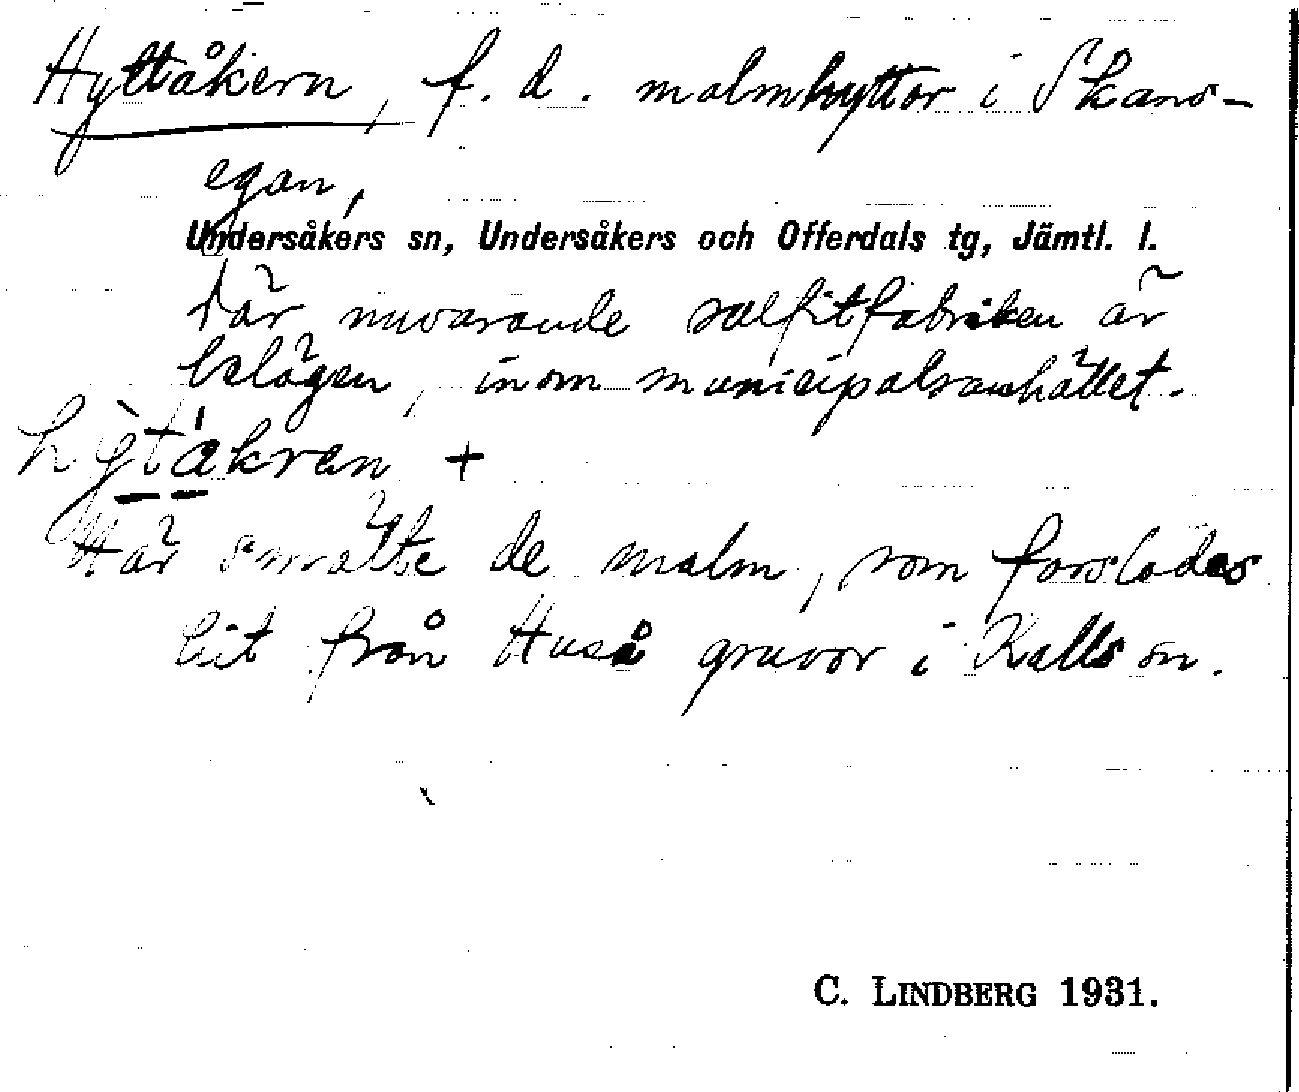 Hyttåkern, f. d. malmhyttor i Skans-
egan,
Undersåkers sn, Undersåkers och Offerdals tg, Jämtl. l.
där nuvarande sulfitfabriken är
belägen, inom municipalsamhället.
hỳtákren +
Här smälte de malm, som forslades
hit från Huså gruvor i Kalls sn.
C. LINDBERG 1931.